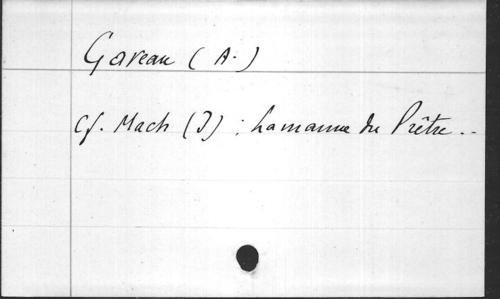 Gaveau (A.)
Cf. Mach (J) : La manne du Prêtre..